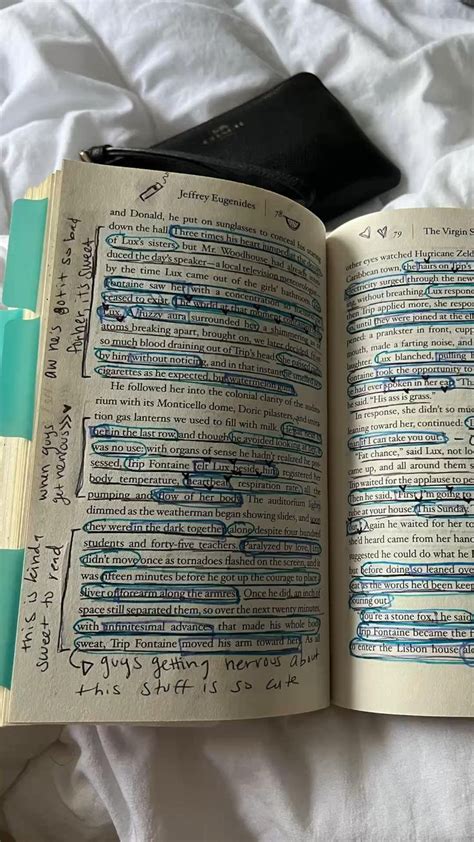 COACH
Jeffrey Eugenides
78
and Donald, he put on sunglasses to conceal his
down the hall. Three times his heart jumped
of Lux's sisters, but Mr. Woodhouse had already
duced the day's speaker—a local television meteorologist
by the time Lux came out of the girls' bathroom.
Fontaine saw her with a concentration
ceased to exist.
fuzzy aura surrounded her, a
atoms breaking apart, brought on, we later decided
so much blood draining out of Trip's head. She
by him without noticing, and in that instant he smelled
cigarettes as he expected, but watermelon
He followed her into the colonial clarity of the
rium with its Monticello dome, Doric pilasters, and
tion gas lanterns we used to fill with milk.
her in the last row and though he avoided looking
was no use: with organs of sense he hadn't realized he
sessed, Trip Fontaine felt Lux beside him, registered her
body temperature, heartbeat, respiration rate, all the
pumping and flow of her body. The auditorium lights
dimmed as the weatherman began showing slides, and
they were in the dark together, alone despite four hundred
students and forty-five teachers. Paralyzed by love,
didn't move once as tornadoes flashed on the screen, and it
was fifteen minutes before he got up the courage to place
sliver of forearm along the armrest. Once he did, an inch of
space still separated them, so over the next twenty minutes,
with infinitesimal advances that made his whole body
sweat, Trip Fontaine moved his arm toward hers. As
guys getting nervous about
this stuff is so cute
aw he's got it so bad
for her, it's sweet
when guys
get nervous>>>
this is kinda
sweet to read
79
The Virgin
other eyes watched Hurricane
Caribbean town, the hairs on
electricity surged through the new
ing, without breathing, Lux
when Trip applied more, she
until they were joined at the
pened: a prankster in front, cup
mouth, made a farting noise, and
laughter. Lux blanched, pulling
Fontaine took the opportunity to
he had ever spoken in her ear.
he said. "His ass is grass."
In response, she didn't so
leaning toward her, continued:
if I can take you out."
"Fat chance," said Lux, not
came up, and all around them
Trip waited for the applause to
Then he said, "First I'm going to
tube at your house. This Sunday.
Again he waited for her to
she'd heard came from her hand
suggested he could do what he
but before doing so leaned over
seat as the words he'd been keep
pouring out.
"You're a stone fox," he said
Trip Fontaine became the
to enter the Lisbon house